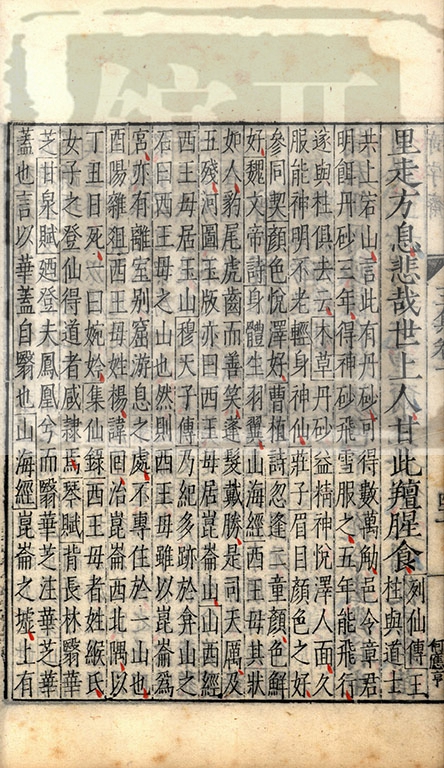 里走方息悲哉世上人甘此羶腥食列仙傳王
柱與道士
共上宕山言此有丹砂可得數萬觔邑令章君
明餌丹砂三年得神砂飛雪服之五年能飛行
遂與柱俱去云本草丹砂益精神悅澤人面久
服能神明不老輕身神仙莊子眉目顏色之好
參同契顏色悅澤好曹植詩忽逢二童顏色鮮
好魏文帝詩身體生羽翼山海經西王母其狀
如人豹尾虎齒而善笑蓬髮戴勝是司天厲及
五殘河圖玉版亦曰西王母居崑崙山山西經
西王母居玉山穆天子傳乃紀多跡於弇山之
石曰西王母之山也然則西王母雖以崑崙爲
宮亦有離室別窟游息之處不專住於一山也
酉陽雜俎西王母姓楊諱回治崑崙西北隅以
丁丑日死一曰婉妗集仙錄西王母者姓緱氏
女子之登仙得道者咸隸焉琴賦背長林翳華
芝甘泉賦廼登夫鳳凰兮而翳華芝華芝華
蓋也言以華蓋自翳也山海經崑崙之墟上有